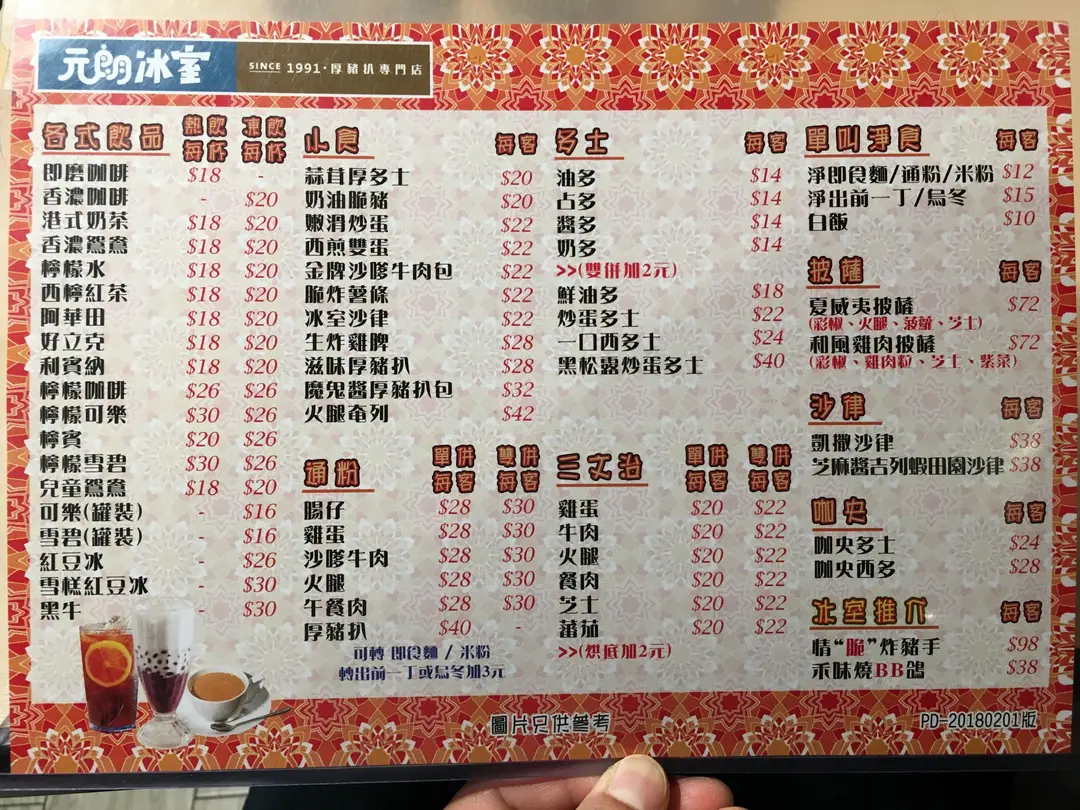 元朗冰室
SINCE 1991·厚豬扒專門店
各式飲品 熱飲每杯 凍飲每杯
即磨咖啡 $18 -
香濃咖啡 - $20
港式奶茶 $18 $20
香濃鴛鴦 $18 $20
檸檬水 $18 $20
西檸紅茶 $18 $20
阿華田 $18 $20
好立克 $18 $20
利賓納 $18 $20
檸檬咖啡 $26 $26
檸檬可樂 $30 $26
檸賓 $20 $26
檸檬雪碧 $30 $26
兒童鴛鴦 $18 $20
可樂(罐裝) - $16
雪碧(罐裝) - $16
紅豆冰 - $26
雪糕紅豆冰 - $30
黑牛 - $30
小食 每客
蒜茸厚多士 $20
奶油脆豬 $20
嫩滑炒蛋 $22
西煎雙蛋 $22
金牌沙嗲牛肉包 $22
脆炸薯條 $22
冰室沙律 $22
生炸雞脾 $28
滋味厚豬扒 $28
魔鬼醬厚豬扒包 $32
火腿奄列 $42
通粉 單併每客 雙併每客
腸仔 $28 $30
雞蛋 $28 $30
沙嗲牛肉 $28 $30
火腿 $28 $30
午餐肉 $28 $30
厚豬扒 $40 -
可轉 即食麵 / 米粉
轉出前一丁或烏冬加3元
多士 每客
油多 $14
占多 $14
醬多 $14
奶多 $14
>>(雙併加2元)
鮮油多 $18
炒蛋多士 $22
一口西多士 $24
黑松露炒蛋多士 $40
三文治 單併每客 雙併每客
雞蛋 $20 $22
牛肉 $20 $22
火腿 $20 $22
餐肉 $20 $22
芝士 $20 $22
蕃茄 $20 $22
>>(烘底加2元)
單叫淨食 每客
淨即食麵/通粉/米粉 $12
淨出前一丁/烏冬 $15
白飯 $10
披薩 每客
夏威夷披薩 $72
(彩椒、火腿、菠蘿、芝士)
和風雞肉披薩 $72
(彩椒、雞肉粒、芝士、紫菜)
沙律 每客
凱撒沙律 $38
芝麻醬吉列蝦田園沙律 $38
咖央 每客
咖央多士 $24
咖央西多 $28
冰室推介 每客
情“脆”炸豬手 $98
禾味燒BB鴿 $38
圖片只供參考
PD-20180201版